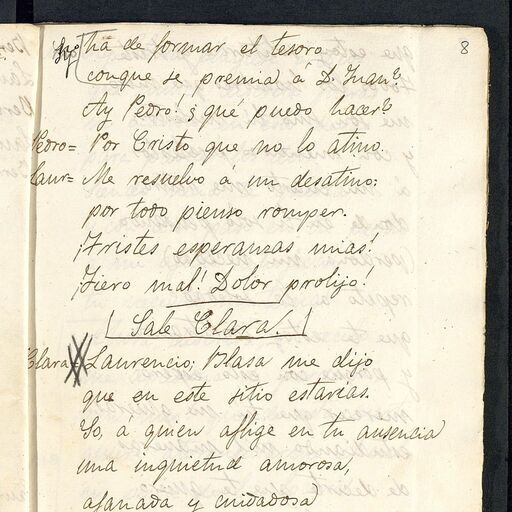 8
ha de formar el tesoro
conque se premia á Dn. Juan?
Ay Pedro! ¿qué puedo hacer?
Pedro= Por Cristo que no lo atino.
Laur= Me resuelvo a un desatino:
por todo pienso romper.
¡Tristes esperanzas mias!
¡Fiero mal! Dolor prolijo!
Sale Clara.
Clara= Laurencio; Blasa me dijo
que en este sitio estarias.
Yo, á quien aflige en tu ausencia
una inquietud amorosa,
afanada y cuidadosa